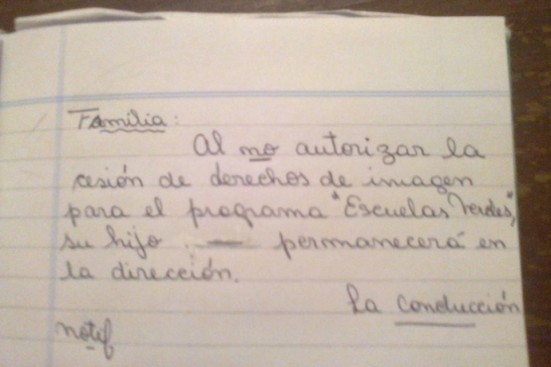 Familia:
Al no autorizar la
cesión de derechos de imagen
para el programa "Escuelas Verdes",
su hijo permanecerá en
la dirección.
La Conducción
notif